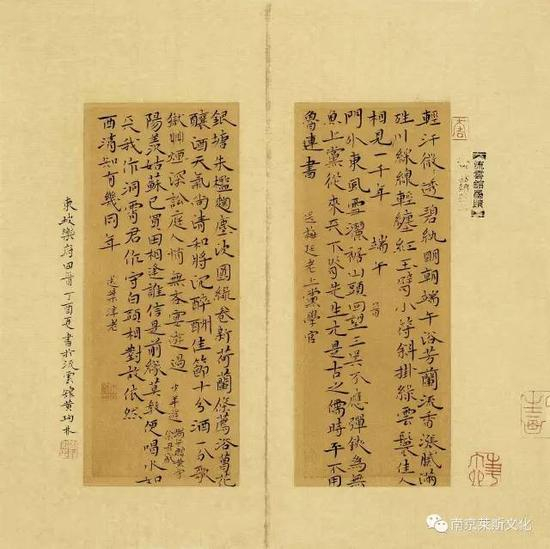 輕汗微透碧紈明朝端午浴芳蘭流香漲膩滿
川線輕纏紅玉臂小符斜掛綠雲鬟佳人
相見一千年 端午
門外東風雪灑裾山頭回望三吳不應彈鋏為無
魚上黨從來天下脊先生元是古之儒時平不用
魯連書 送梅廷老上黨學官
銀塘朱檻麴塵波圓綠卷新荷蘭條薦浴菖花
釀酒天氣尚清和將沉醉酬佳節十分酒一分歌
獄草煙深訟庭人悄無吝宴遊過 少年遊 端午贈黃守徐君猷
陽羨姑蘇已買田相逢誰信是前緣莫教便唱水如
天我作洞霄君作守白頭相對故依然
西湖知有幾同年 送葉淳老
東坡樂府四首丁酉夏書於流雲館黃
南京莱斯文化